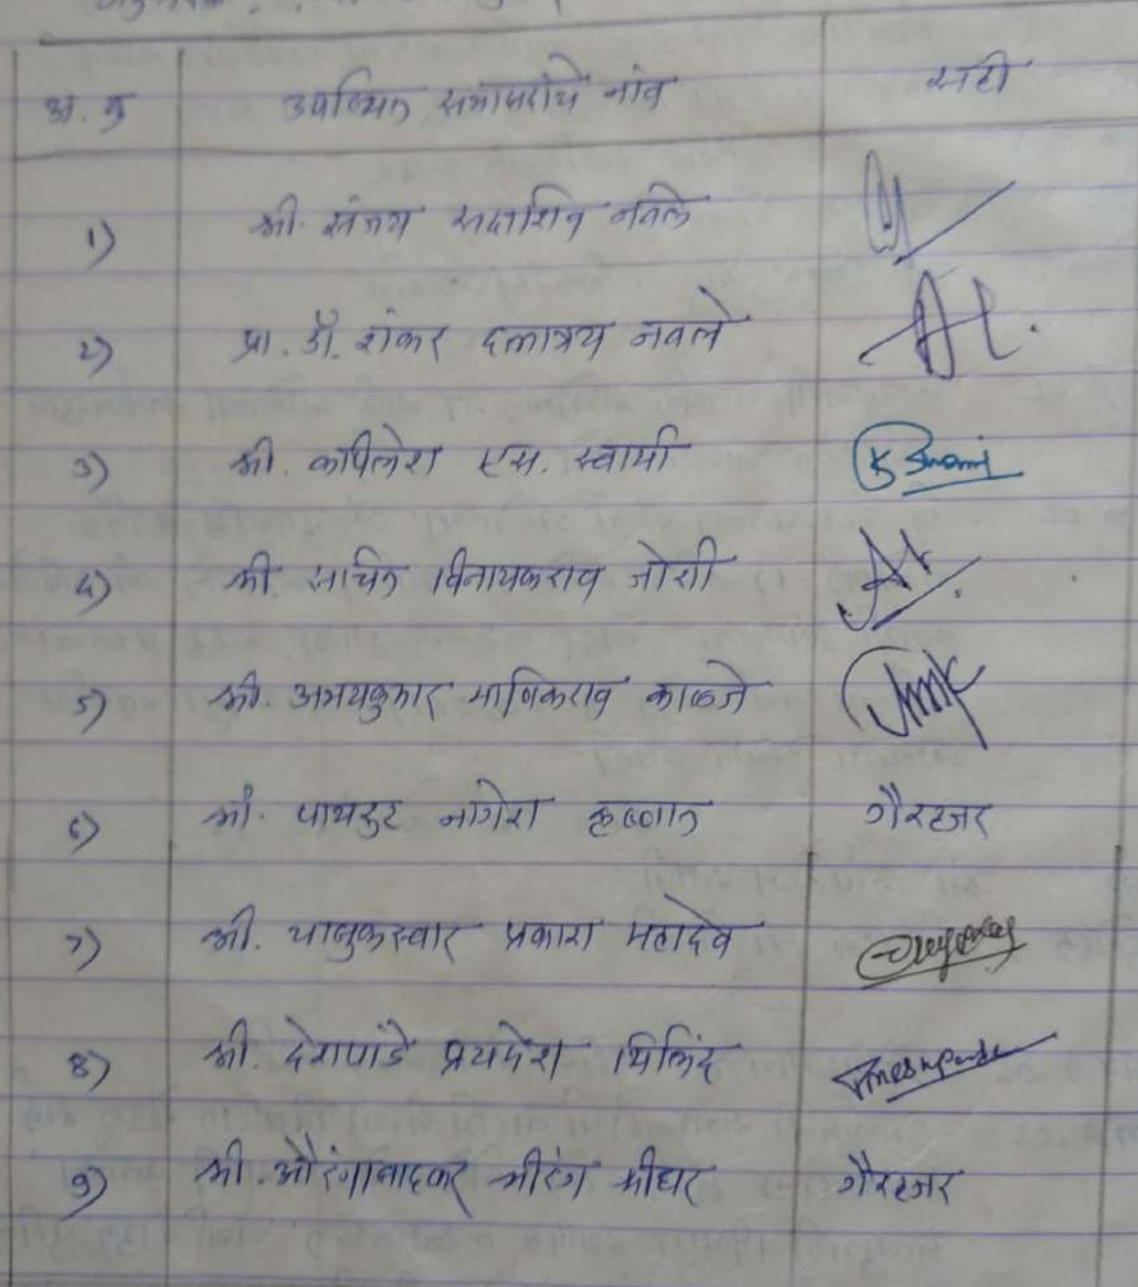 अ. क्र उपस्थित सभासदांचे नांव सही
1) श्री. संजय सदाशिव नवले
2) प्रा. डॉ. शंकर दत्तात्रय नवले
3) श्री. कपिलेश एस. स्वामी K Swami
4) श्री. सचिन विनायकराव जोशी
5) श्री. अभयकुमार माणिकराव काळजे
6) श्री. पाथरुट नागेश कृष्णात गैरहजर
7) श्री. प्रकाश महादेव
8) श्री. देशपांडे मिलिंद
9) श्री. औरंगाबादकर श्रीरंग श्रीधर गैरहजर